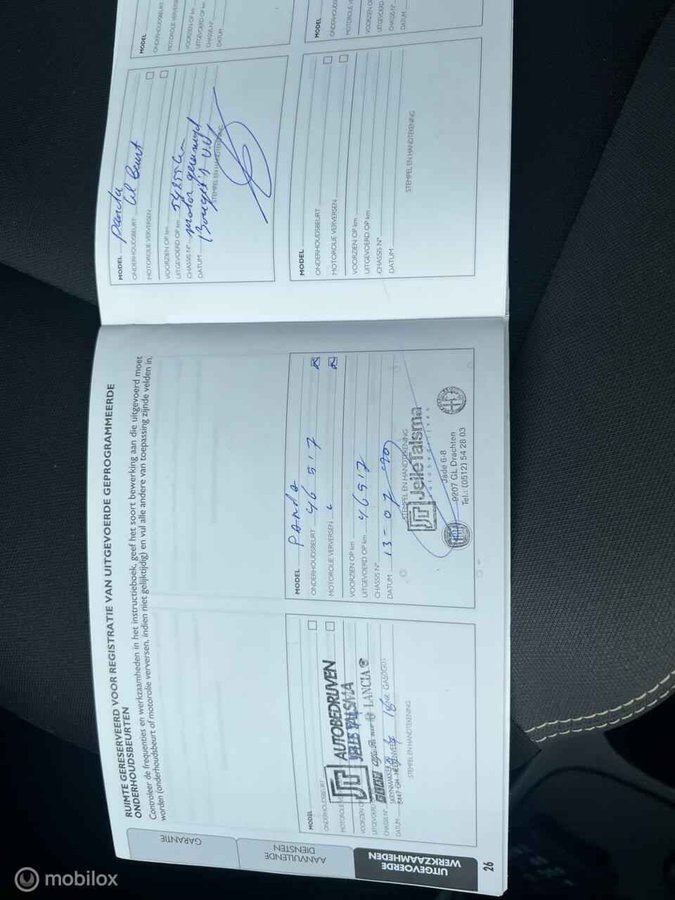 RUIMTE GERESERVEERD VOOR REGISTRATIE VAN UITGEVOERDE GEPROGRAMMEERDE
ONDERHOUDSBEURTEN
Controleer de frequenties en werkzaamheden in het instructieboek, geef het soort bewerking aan die uitgevoerd moet
worden (onderhoudsbeurt of motorolie verversen, indien niet gelijktijdig) en vul alle andere van toepassing zijnde velden in.
MODEL
ONDERHOUDSBEURT
AUTOBEDRIJVEN
JELLE TALSMA
LANCIA
CHASSIS N°
DATUM
STEMPEL EN HANDTEKENING
MODEL Panda
ONDERHOUDSBEURT 46517
MOTOROLIE VERVERSEN
VOORZIEN OP km
UITGEVOERD OP km 46517
CHASSIS N°
DATUM 13-07
STEMPEL EN HANDTEKENING
JT JelleTalsma
Jade 6-8
9207 GL Drachten
Tel.: (0512) 54 28 03
GARANTIE
AANVULLENDE
DIENSTEN
UITGEVOERDE
WERKZAAMHEDEN
26
MODEL
ONDERHOUDSBEURT
MOTOROLIE VERVERSEN
VOORZIEN OP km
UITGEVOERD OP km
CHASSIS N°
DATUM
MODEL
ONDERHOUDSBEURT
MOTOROLIE VERVERSEN
VOORZIEN OP km
UITGEVOERD OP km
CHASSIS N°
DATUM
MODEL Panda
ONDERHOUDSBEURT
MOTOROLIE VERVERSEN
VOORZIEN OP km
UITGEVOERD OP km
CHASSIS N° motor gereinigd
DATUM
STEMPEL EN HANDTEKENING
MODEL
ONDERHOUDSBEURT
MOTOROLIE VERVERSEN
VOORZIEN OP km
UITGEVOERD OP km
CHASSIS N°
DATUM
STEMPEL EN HANDTEKENING
mobilox